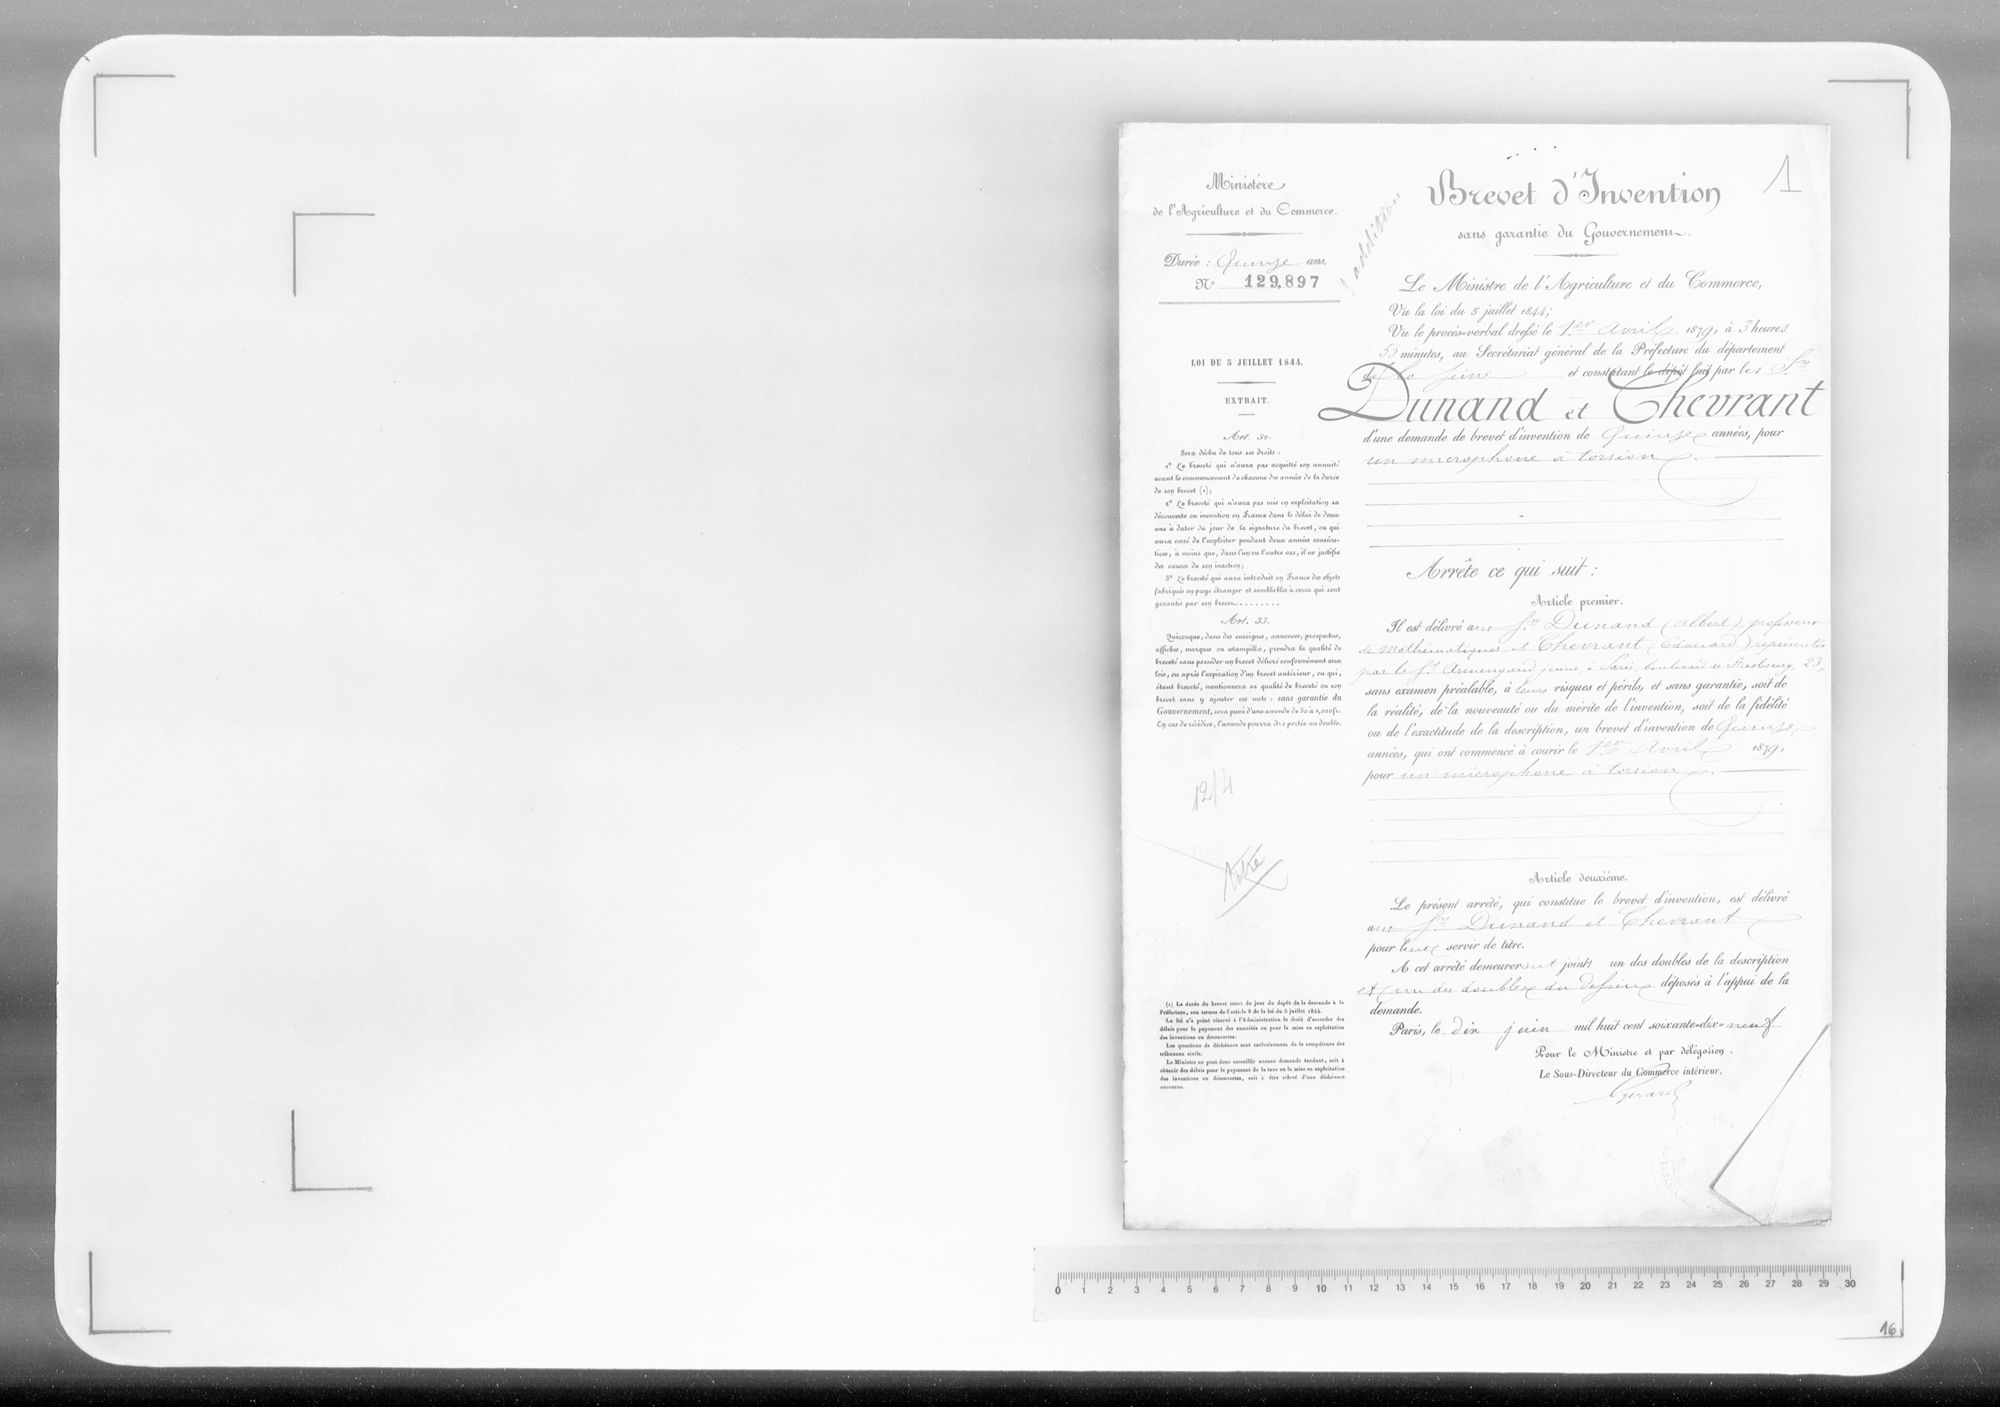 Ministère
de l'Agriculture et du Commerce.
Durée : Quinze ans.
N° 129,897
LOI DU 5 JUILLET 1844.
EXTRAIT.
Art. 32.
Sera déchu de tous ses droits :
1° Le breveté qui n'aura pas acquitté son annuité
avant le commencement de chacune des années de la durée
de son brevet (1);
2° Le breveté qui n'aura pas mis en exploitation sa
découverte ou invention en France dans le délai de deux
ans à dater du jour de la signature du brevet, ou qui
aura cessé de l'exploiter pendant deux années consécu-
tives, à moins que, dans l'un ou l'autre cas, il ne justifie
des causes de son inaction;
3° Le breveté qui aura introduit en France des objets
fabriqués en pays étranger et semblables à ceux qui sont
garantis par son brevet.........
Art. 33.
Quiconque, dans des enseignes, annonces, prospectus,
affiches, marques ou estampilles, prendra la qualité de
breveté sans posséder un brevet délivré conformément aux
lois, ou après l'expiration d'un brevet antérieur, ou qui,
étant breveté, mentionnera sa qualité de breveté ou son
brevet sans y ajouter ces mots : sans garantie du
Gouvernement, sera puni d'une amende de 50 à 1,000 fr.
En cas de récidive, l'amende pourra être portée au double.
12/4
titre
(1) La durée du brevet court du jour du dépôt de la demande à la
Préfecture, aux termes de l'article 8 de la loi du 5 juillet 1844.
La loi n'a point réservé à l'Administration le droit d'accorder des
délais pour le payement des annuités ou pour la mise en exploitation
des inventions ou découvertes.
Les questions de déchéance sont exclusivement de la compétence des
tribunaux civils.
Le Ministre ne peut donc accueillir aucune demande tendant, soit à
obtenir des délais pour le payement de la taxe ou la mise en exploitation
des inventions ou découvertes, soit à être relevé d'une déchéance
encourue.
1 addition
1
Brevet d'Invention
sans garantie du Gouvernement.
Le Ministre de l'Agriculture et du Commerce,
Vu la loi du 5 juillet 1844;
Vu le procès-verbal dressé le 1er Avril 1879, à 3 heures
55 minutes, au Secrétariat général de la Préfecture du département
de la Seine et constatant le dépôt fait par les Srs
Dunand et Chevrant
d'une demande de brevet d'invention de Quinze années, pour
un microphone à torsion.
Arrête ce qui suit :
Article premier.
Il est délivré aux Srs Dunand (Albert), professeur
de mathématiques et Chevrant (Edouard) représentés
par le Sr Armengaud jeune, à Paris, boulevard de Strasbourg, 23,
sans examen préalable, à leurs risques et périls, et sans garantie, soit de
la réalité, de la nouveauté ou du mérite de l'invention, soit de la fidélité
ou de l'exactitude de la description, un brevet d'invention de Quinze
années, qui ont commencé à courir le 1er Avril 1879,
pour un microphone à torsion.
Article deuxième.
Le présent arrêté, qui constitue le brevet d'invention, est délivré
aux Srs Dunand et Chevrant
pour leur servir de titre.
A cet arrêté demeureront joints un des doubles de la description
et un des doubles du dessin déposés à l'appui de la
demande.
Paris, le dix juin mil huit cent soixante-dix-neuf
Pour le Ministre et par délégation.
Le Sous-Directeur du Commerce intérieur.
Girard
0 1 2 3 4 5 6 7 8 9 10 11 12 13 14 15 16 17 18 19 20 21 22 23 24 25 26 27 28 29 30
16